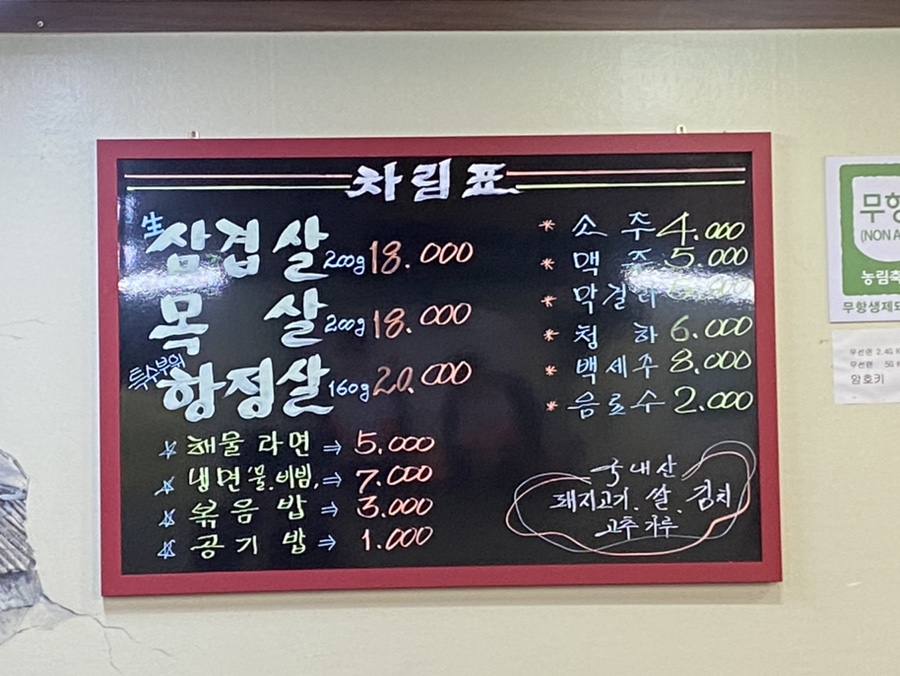 차림표
生
삼겹살 200g 18.000
목살 200g 18.000
특수부위
항정살 160g 20.000
☆ 해물라면 ⇒ 5.000
☆ 냉면 물.비빔, ⇒ 7.000
☆ 볶음밥 ⇒ 3.000
☆ 공기밥 ⇒ 1.000
* 소주 4.000
* 맥주 5.000
* 막걸리
* 청하 6.000
* 백세주 8.000
* 음료수 2.000
국내산
돼지고기. 쌀. 김치
고추가루
무항
(NON A
농림축
무항생제돼
무선랜 2.4G
무선랜 5G
암호키